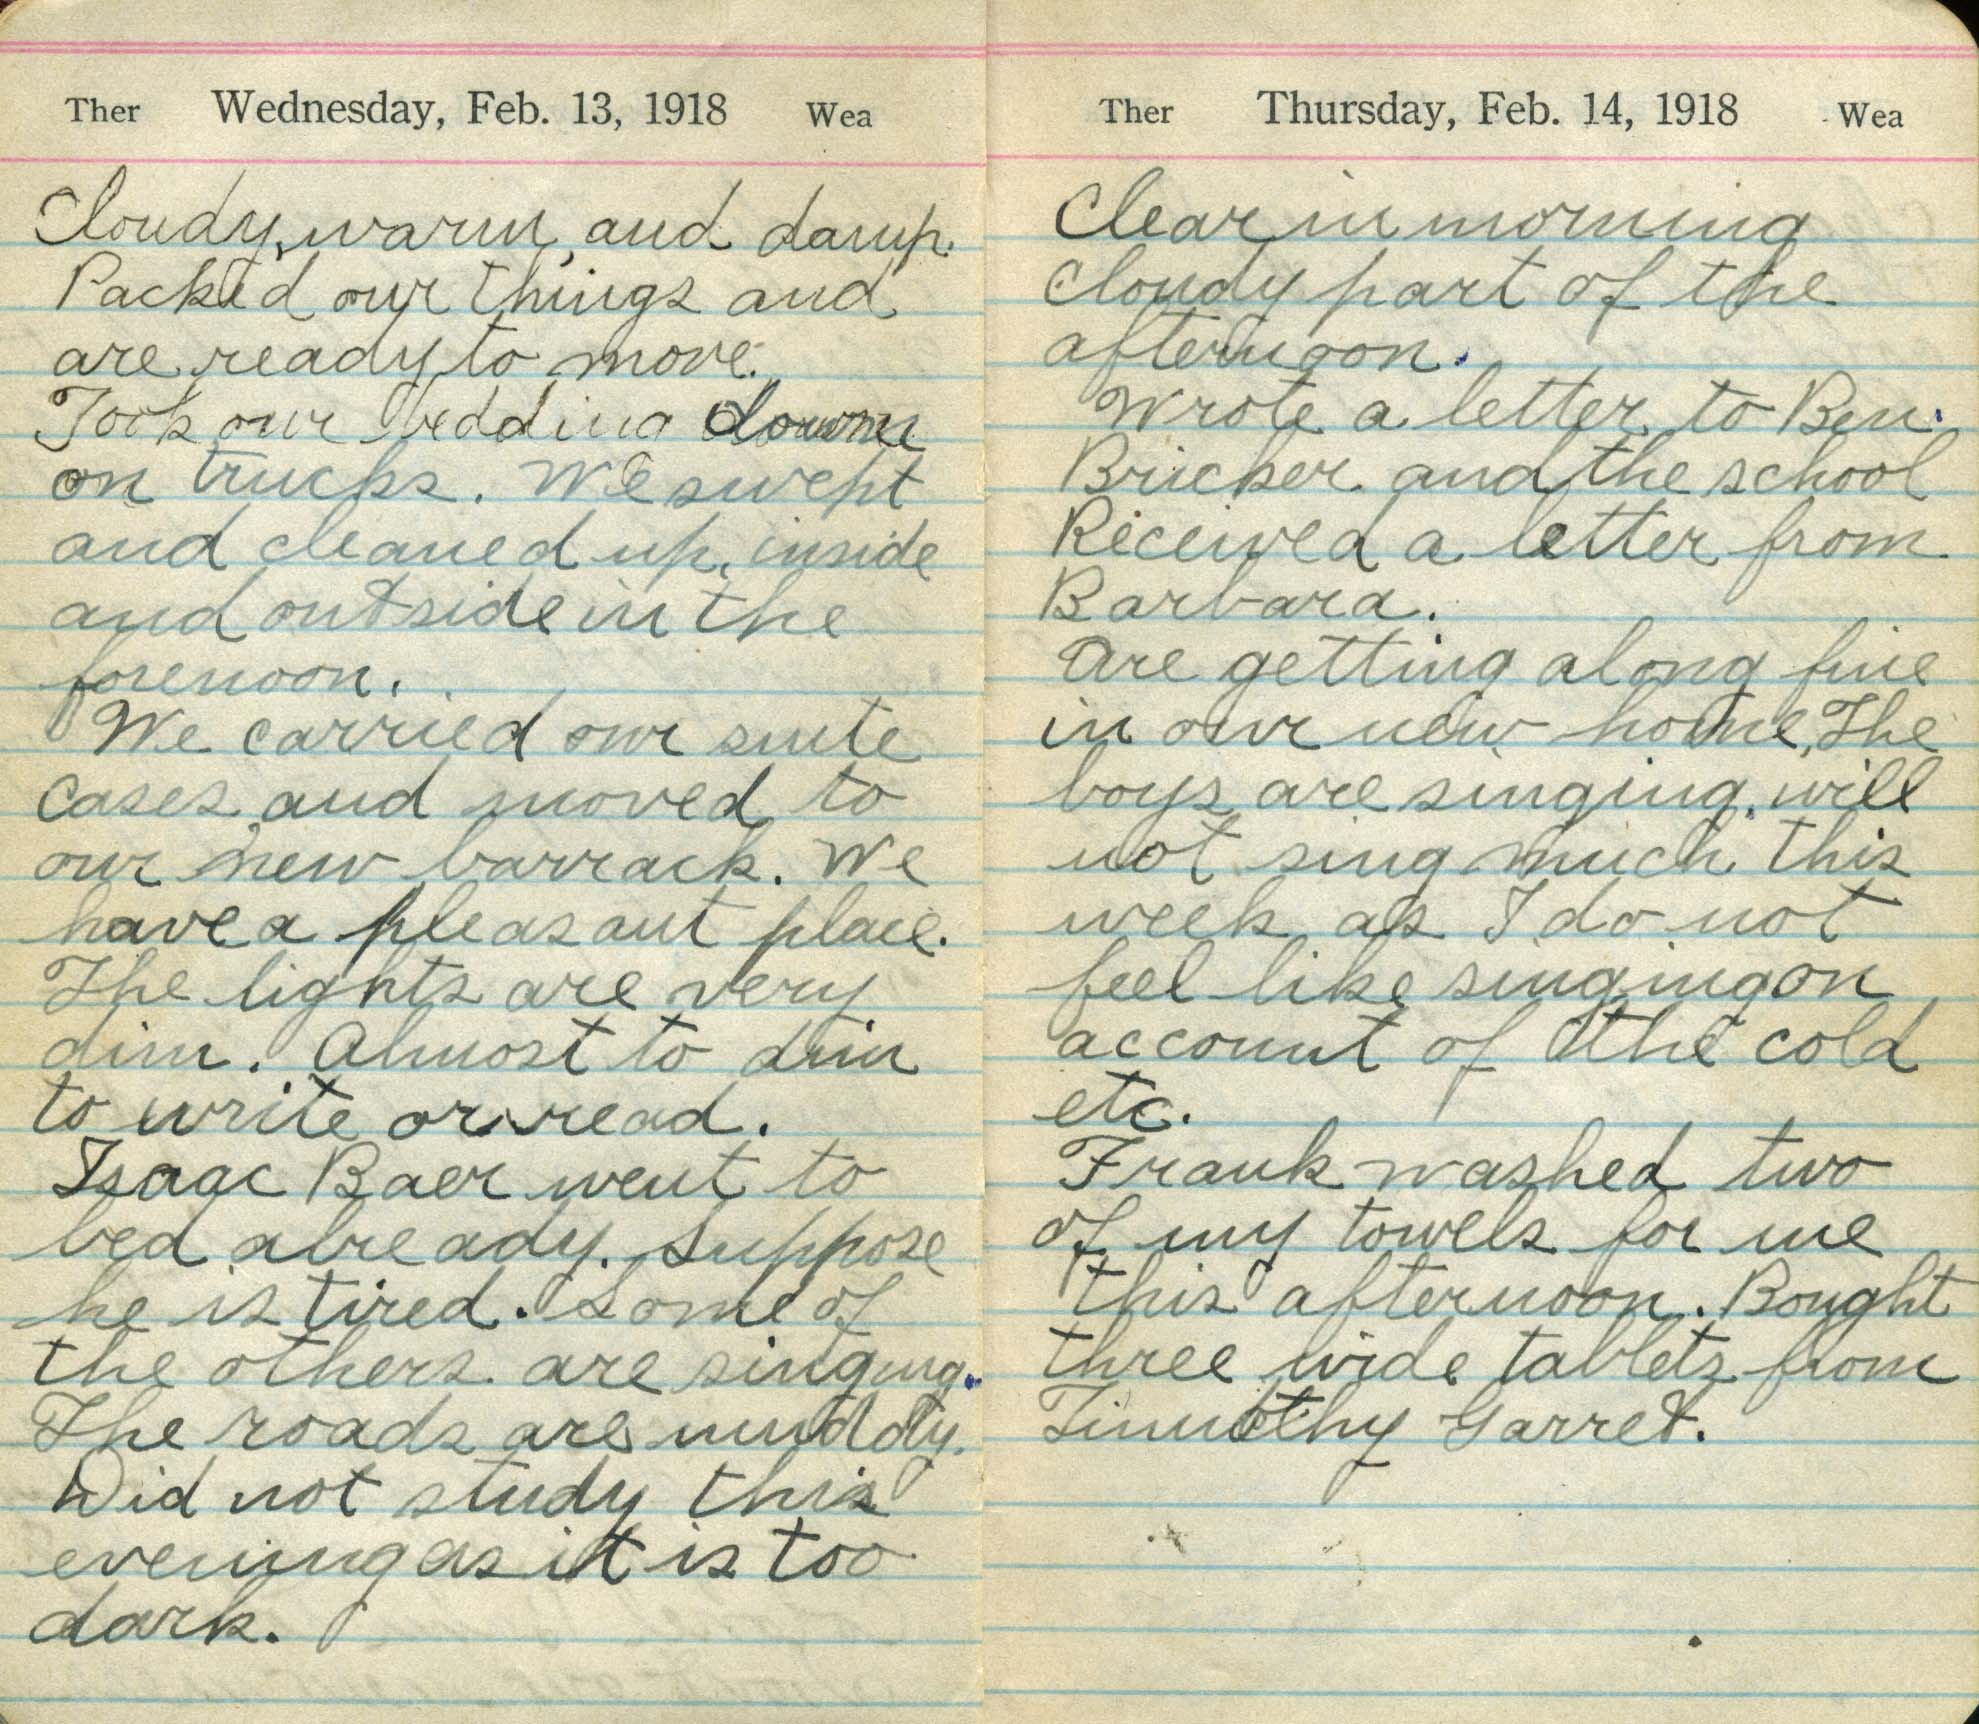 Ther Wednesday, Feb. 13, 1918 Wea
Cloudy, warm, and damp.
Packed our things and
are ready to move.
Took our bedding down
on trucks. We swept
and cleaned up, inside
and outside in the
forenoon.
We carried our suite
cases, and moved to
our new barrack. We
have a pleasant place.
The lights are very
dim. Almost to dim
to write or read.
Isaac Baer went to
bed already. Suppose
he is tired. Some of
the others are singing.
The roads are muddy.
Did not study this
evening as it is too
dark.
Ther Thursday, Feb. 14, 1918 Wea
Clear in morning
cloudy part of the
afternoon.
Wrote a letter to Ben.
Bricker and the school
Received a letter from
Barbara.
Are getting along fine
in our new home, The
boys are singing. will
not sing much this
week as I do not
feel like singing on
account of the cold
etc.
Frank washed two
of my towels for me
this afternoon. Bought
three wide tablets from
Timothy Garret.